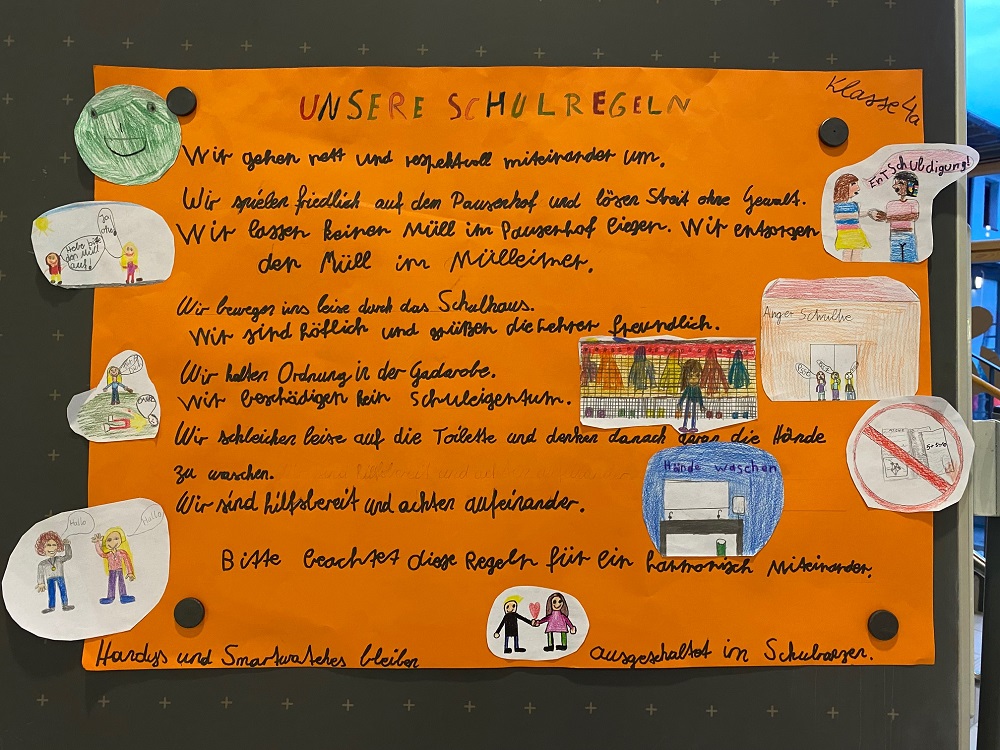 UNSERE SCHULREGELN
Klasse 4a
Wir gehen nett und respektvoll miteinander um.
Wir spielen friedlich auf dem Pausenhof und lösen Streit ohne Gewalt.
EnTschuldigung!
Wir lassen keinen Müll im Pausenhof liegen. Wir entsorgen
den Müll im Mülleimer.
Ja ohu!
Hebe bitte den Müll auf!
Wir bewegen uns leise durch das Schulhaus.
Wir sind höflich und grüßen die Lehrer freundlich.
Anger Schulhe
Wir halten Ordnung in der Gadarobe.
Wir beschädigen kein Schuleigentum.
Wir schleichen leise auf die Toilette und denken danach daran die Hände
zu waschen.
Hände waschen
Wir sind hilfsbereit und achten aufeinander.
Hallo
Hallo
Bitte beachtet diese Regeln für ein harmonisch Miteinander.
Handys und Smartwatches bleiben ausgeschaltet im Schulranzen.